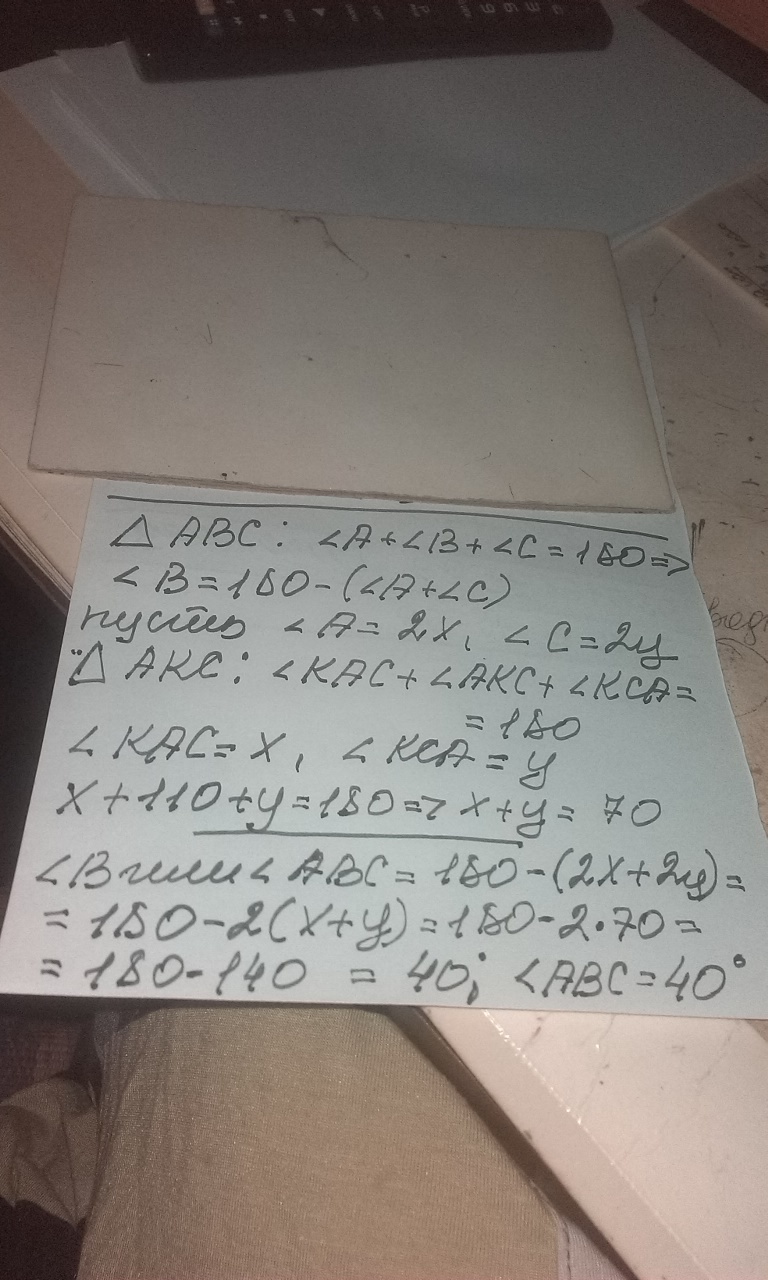 △ ABC: ∠A+∠B+∠C=180=>
∠B=180-(∠A+∠C)
пусть ∠A=2x, ∠C=2y
△ AKC: ∠KAC+∠AKC+∠KCA=
=180
∠KAC=x, ∠KCA=y
x+110+y=180=> x+y= 70
∠B или ∠ABC= 180-(2x+2y)=
=180-2(x+y)=180-2·70=
=180-140 = 40; ∠ABC=40°